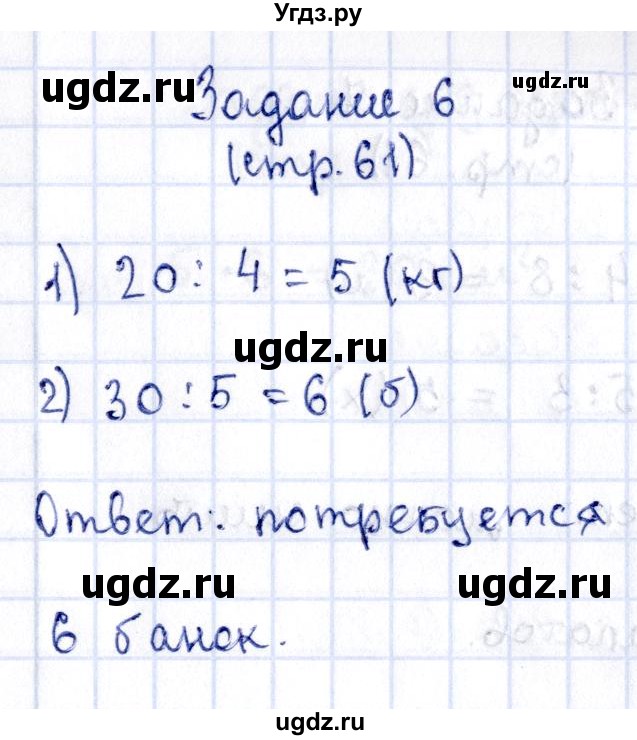 Угдз.ру
ugdz.ru ugdz.ru
Задание 6
(стр. 61)
1) 20 : 4 = 5 (кг)
ugdz.ru
2) 30 : 5 = 6 (б)
Ответ: потребуется
ugdz.ru ugdz.ru
6 банок.
ugdz.ru